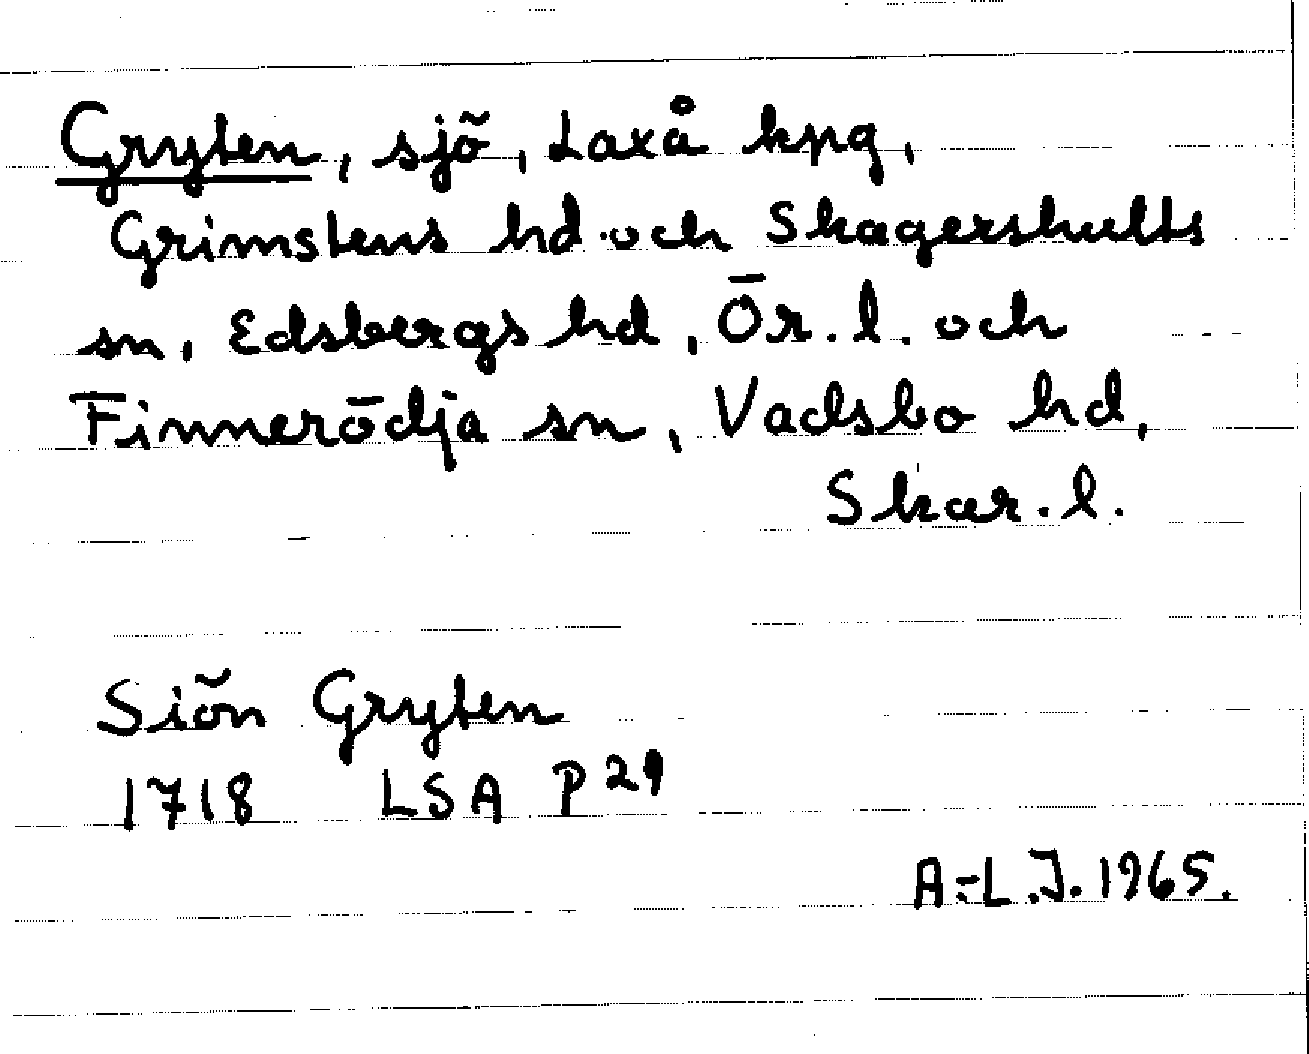 Gryten, sjö, Laxå kpg,
Grimstens hd och Skagershults
sn, Edsbergs hd, Ör. l. och
Finnerödja sn, Vadsbo hd,
Skar. l.
Siön Gryten
1718 LSA P 29
A-L.J. 1965.